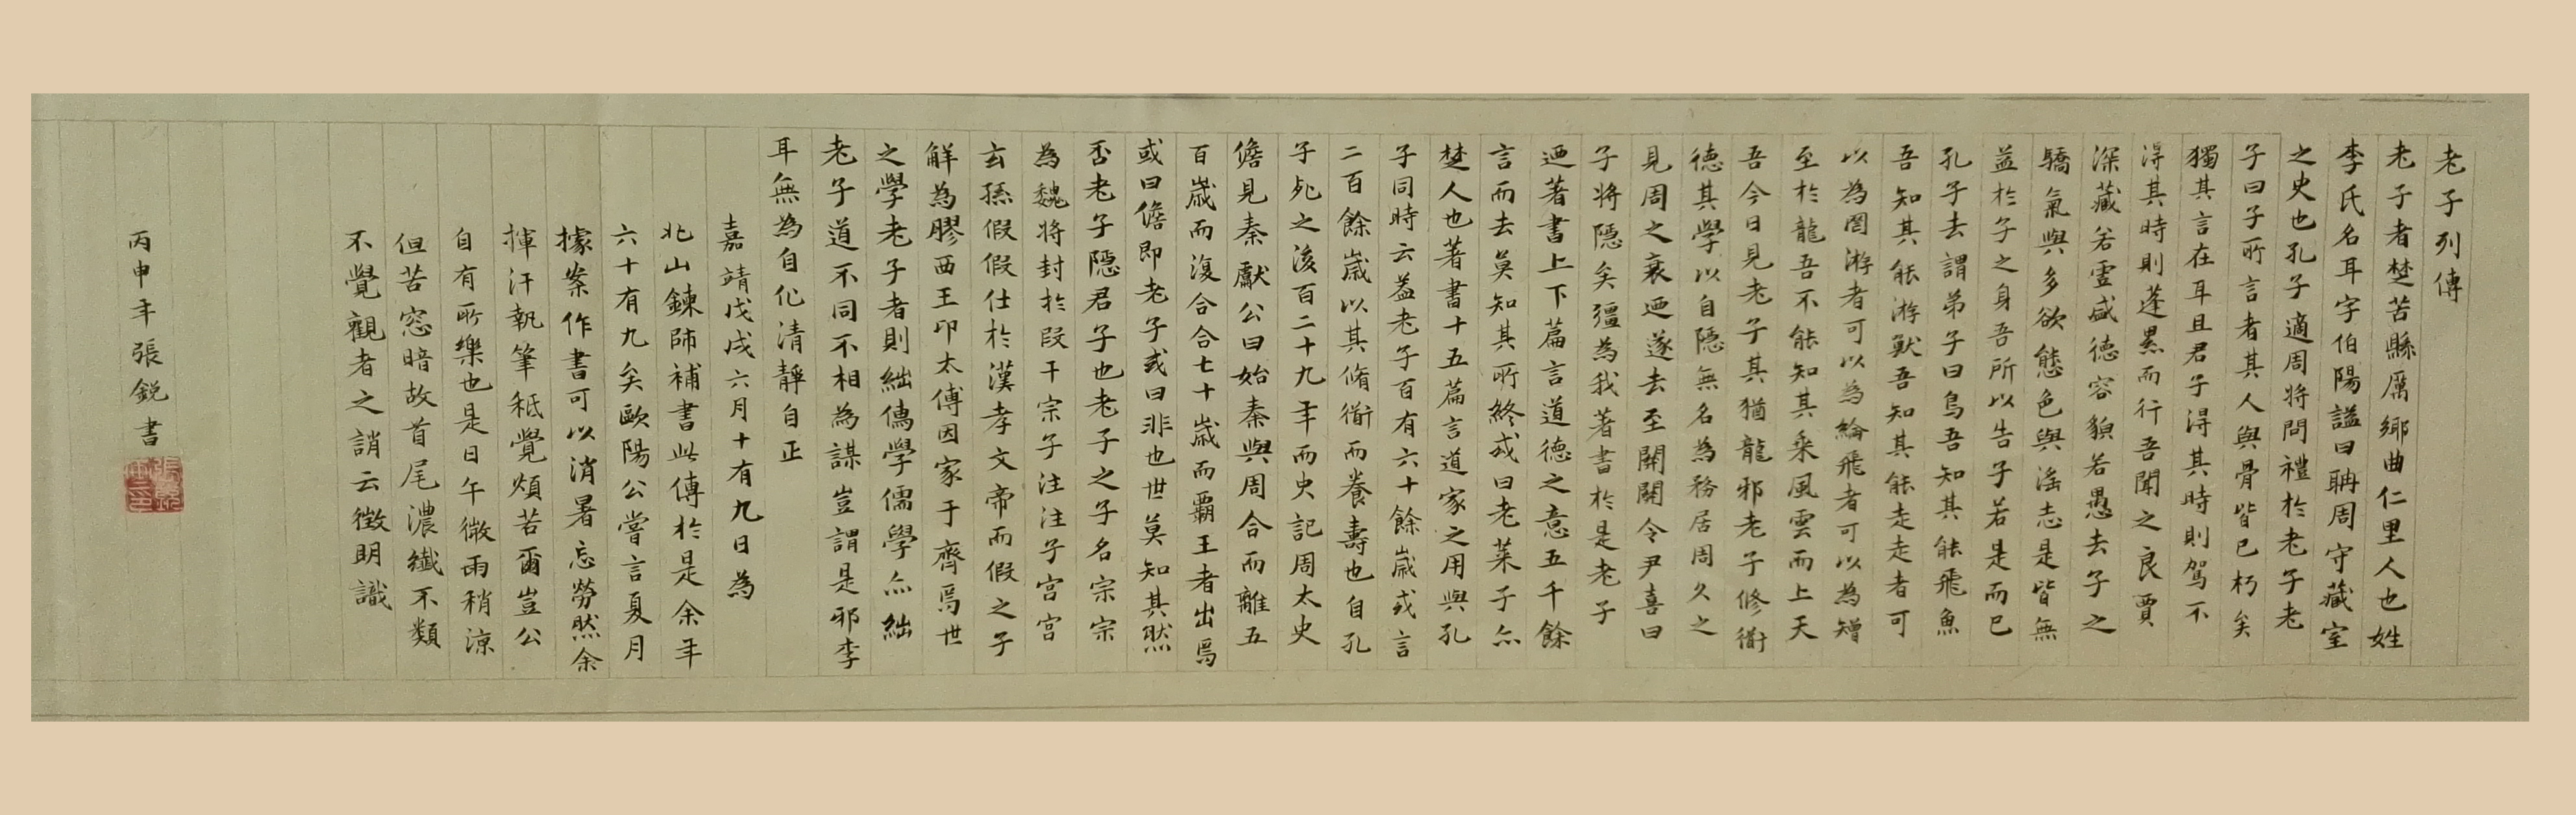 老子列傳
老子者楚苦縣厲鄉曲仁里人也姓
李氏名耳字伯陽諡曰聃周守藏室
之史也孔子適周將問禮於老子老
子曰子所言者其人與骨皆已朽矣
獨其言在耳且君子得其時則駕不
得其時則蓬累而行吾聞之良賈
深藏若虛盛德容貌若愚去子之
驕氣與多欲態色與淫志是皆無
益於子之身吾所以告子若是而已
孔子去謂弟子曰鳥吾知其能飛魚
吾知其能游獸吾知其能走走者可
以為罔游者可以為綸飛者可以為矰
至於龍吾不能知其乘風雲而上天
吾今日見老子其猶龍邪老子修衜
德其學以自隱無名為務居周久之
見周之衰迺遂去至關關令尹喜曰
子將隱矣彊為我著書於是老子
迺著書上下篇言道德之意五千餘
言而去莫知其所終或曰老萊子亦
楚人也著書十五篇言道家之用與孔
子同時云蓋老子百有六十餘歲或言
二百餘歲以其脩衜而養壽也自孔
子死之後百二十九年而史記周太史
儋見秦獻公曰始秦與周合而離五
百歲而復合合七十歲而霸王者出焉
或曰儋即老子或曰非也世莫知其然
否老子隱君子也老子之子名宗宗
為魏將封於段干宗子注注子宮宮
玄孫假假仕於漢孝文帝而假之子
解為膠西王卬太傅因家于齊焉世
之學老子者則絀儒學儒學亦絀
老子道不同不相為謀豈謂是邪李
耳無為自化清靜自正
嘉靖戊戌六月十有九日為
北山鍊師補書此傳於是余年
六十有九矣歐陽公嘗言夏月
據案作書可以消暑忘勞然余
揮汗執筆秪覺煩苦爾豈公
自有所樂也是日午微雨稍涼
但苦窓暗故首尾濃纖不類
不覺觀者之誚云徵明識
丙申年張銳書